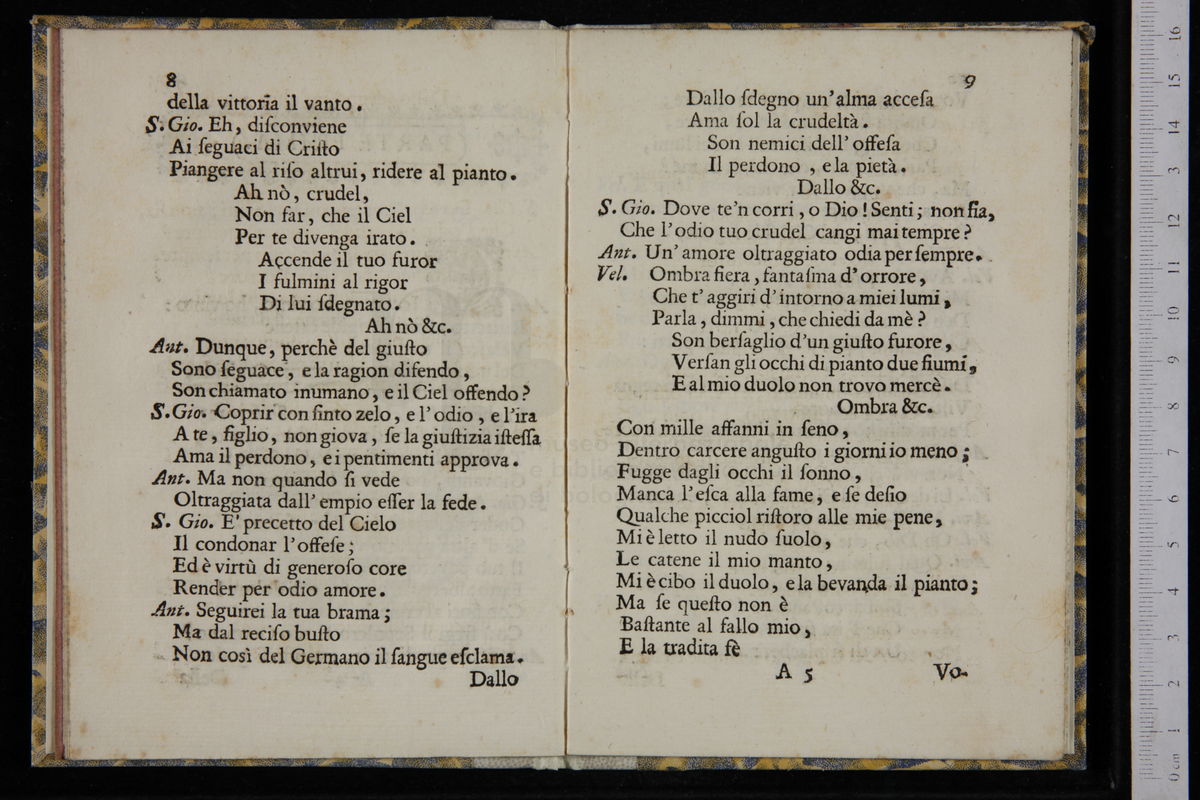 8
della vittoria il vanto.
S. Gio. Eh, diſconviene
Ai ſeguaci di Criſto
Piangere al riſo altrui, ridere al pianto.
Ah nò, crudel,
Non far, che il Ciel
Per te divenga irato.
Accende il tuo furor
I fulmini al rigor
Di lui ſdegnato.
Ah nò &c.
Ant. Dunque, perchè del giuſto
Sono ſeguace, e la ragion difendo,
Son chiamato inumano, e il Ciel offendo?
S. Gio. Coprir con finto zelo, e l'odio, e l'ira
A te, figlio, non giova, ſe la giuſtizia iſteſſa
Ama il perdono, e i pentimenti approva.
Ant. Ma non quando ſi vede
Oltraggiata dall' empio eſſer la fede.
S. Gio. E' precetto del Cielo
Il condonar l'offeſe;
Ed è virtù di generoſo core
Render per odio amore.
Ant. Seguirei la tua brama;
Ma dal reciſo buſto
Non così del Germano il ſangue eſclama.
Dallo
9
Dallo ſdegno un'alma acceſa
Ama ſol la crudeltà.
Son nemici dell' offeſa
Il perdono, e la pietà.
Dallo &c.
S. Gio. Dove te'n corri, o Dio! Senti; non fia,
Che l'odio tuo crudel cangi mai tempre?
Ant. Un' amore oltraggiato odia per ſempre.
Vel. Ombra fiera, fantaſma d' orrore,
Che t' aggiri d' intorno a miei lumi,
Parla, dimmi, che chiedi da mè?
Son berſaglio d'un giuſto furore,
Verſan gli occhi di pianto due fiumi,
E al mio duolo non trovo mercè.
Ombra &c.
Con mille affanni in ſeno,
Dentro carcere anguſto i giorni io meno;
Fugge dagli occhi il ſonno,
Manca l'eſca alla fame, e ſe deſio
Qualche picciol riſtoro alle mie pene,
Mi è letto il nudo ſuolo,
Le catene il mio manto,
Mi è cibo il duolo, e la bevanda il pianto;
Ma ſe queſto non è
Baſtante al fallo mio,
E la tradita fè
A 5
Vo-